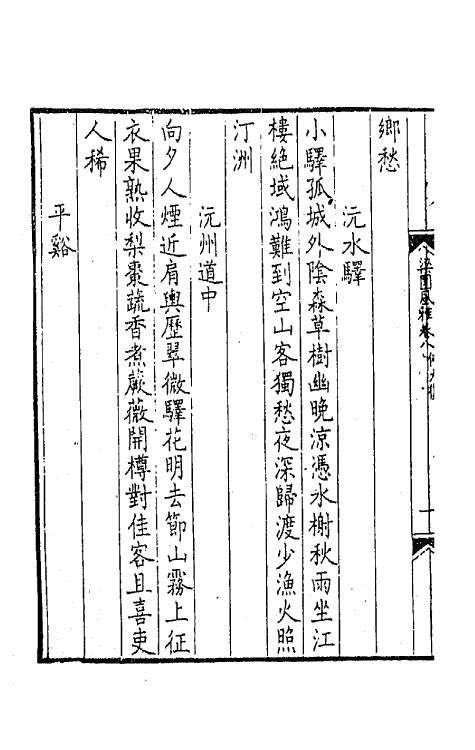 鄉愁
沅水驛
小驛孤城外陰森草樹幽晚涼憑水榭秋雨坐江
樓絕域鴻難到空山客獨愁夜深歸渡少漁火照
汀洲
沅州道中
向夕人煙近肩輿歷翠微驛花明去節山霧上征
衣果熟收梨棗蔬香煮蕨薇開樽對佳客且喜吏
人稀
平谿
梁園風雅卷八